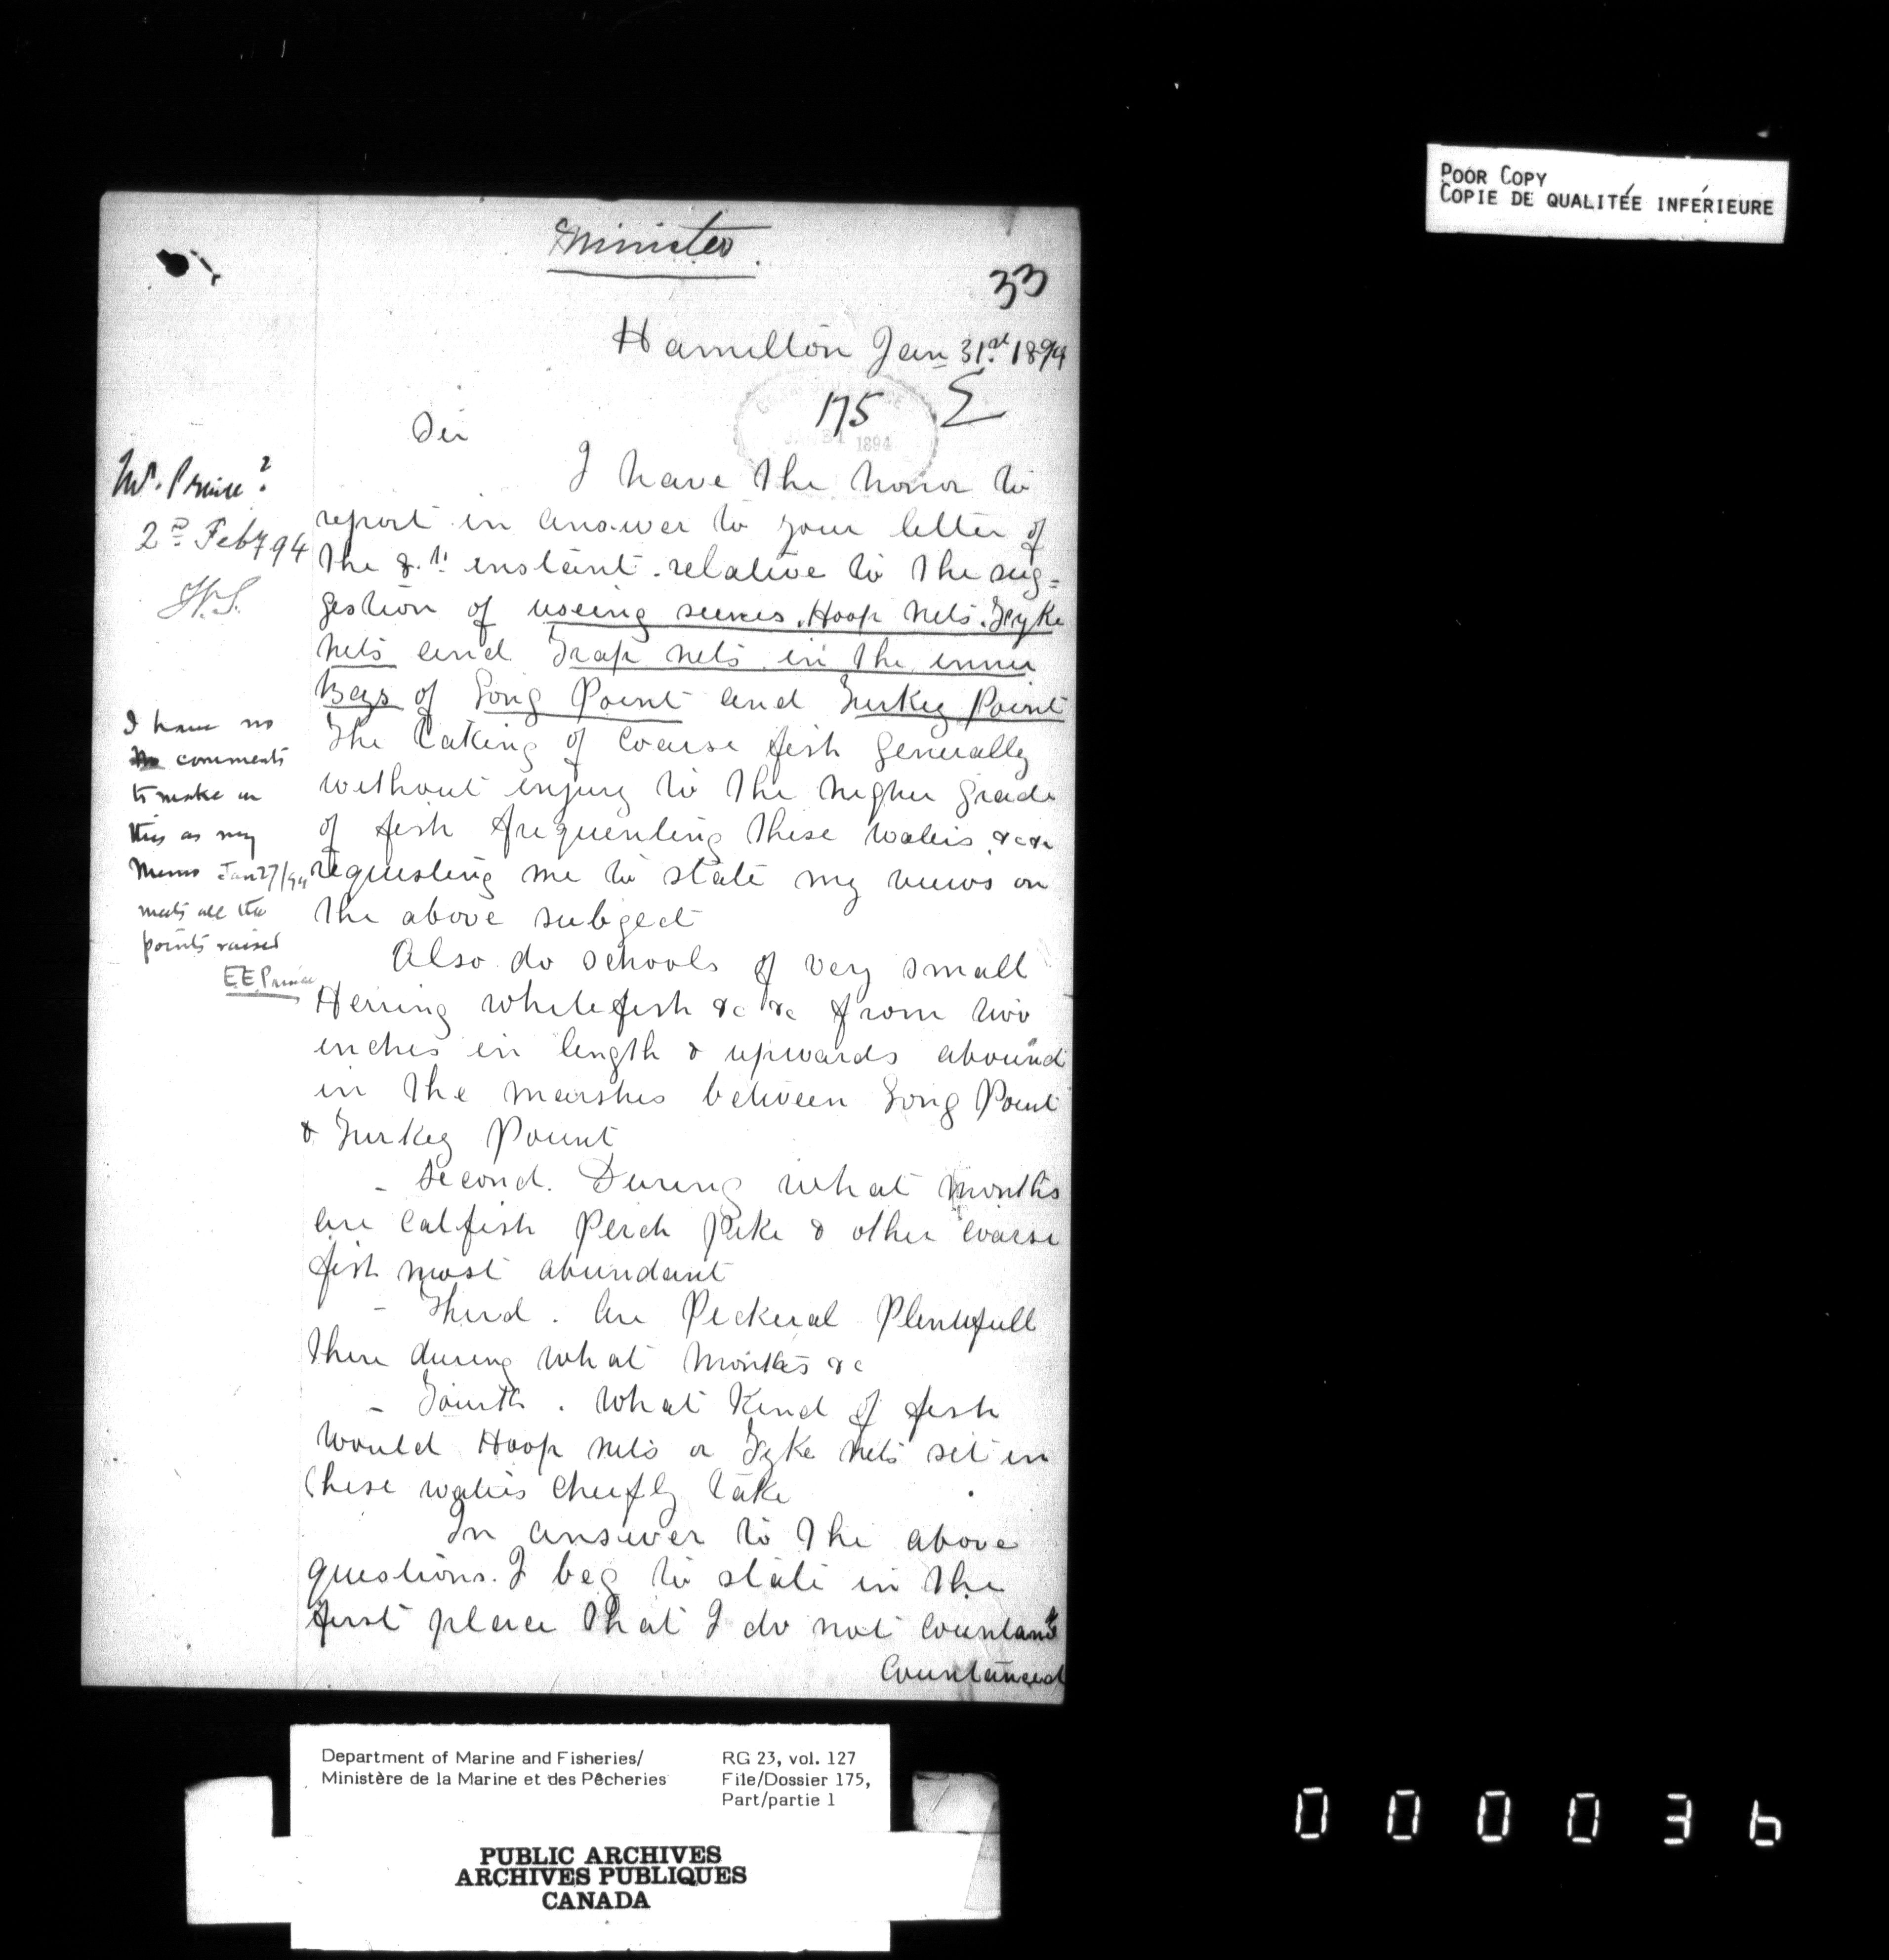 POOR COPY
COPIE DE QUALITÉE INFÉRIEURE
Minister.
33
Hamilton Jan 31st 1894
175
JAN 31 1894
Sir
I have the honor to
report in answer to your letter of
the 8.th instant. relative to the sug=
gestion of useing seines. Hoop nets. Fyke
nets and Trap nets in the inner
Bays of Long Point and Turkey Point
The taking of Coarse fish generally
without injury to the higher grade
of fish frequenting these waters &c &c
requesting me to state my views on
the above subject
Also do schools of very small
Herring whitefish &c &c from two
inches in length & upwards abound
in the marshes between Long Point
& Turkey Point
- Second. During what months
are Catfish Perch Pike & other coarse
fish most abundant
- Third. Are Pickeral Plentifull
there during what months &c
- Fourth. What Kind of fish
would Hoop nets or Fyke nets set in
these waters cheifly take
In answer to the above
questions. I beg to state in the
first place that I do not
Countanced
Mr. Prince?
2nd Feby 94
I have no
comments
to make on
this as my
Memo Jan 27/94
meets all the
points raised
E.E. Prince
Department of Marine and Fisheries/
Ministère de la Marine et des Pêcheries
RG 23, vol. 127
File/Dossier 175,
Part/partie 1
PUBLIC ARCHIVES
ARCHIVES PUBLIQUES
CANADA
000036